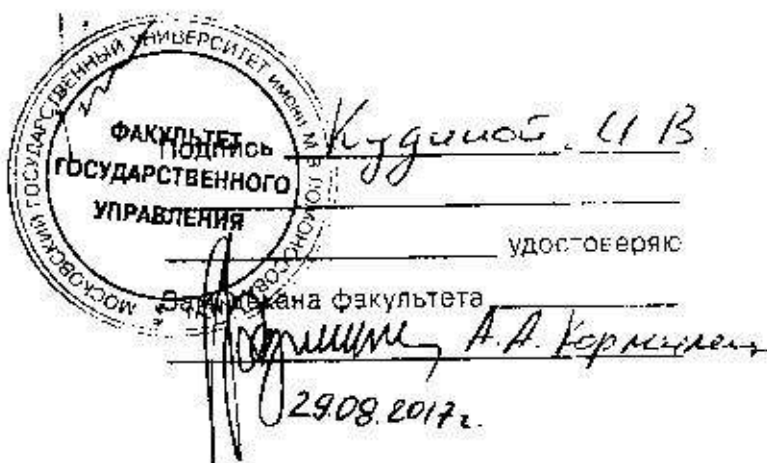 МОСКОВСКИЙ ГОСУДАРСТВЕННЫЙ УНИВЕРСИТЕТ ИМЕНИ М.В. ЛОМОНОСОВА
ФАКУЛЬТЕТ
ГОСУДАРСТВЕННОГО
УПРАВЛЕНИЯ
Подпись И В
удостоверяю
Зам. декана факультета
А.А.
29.08.2017г.